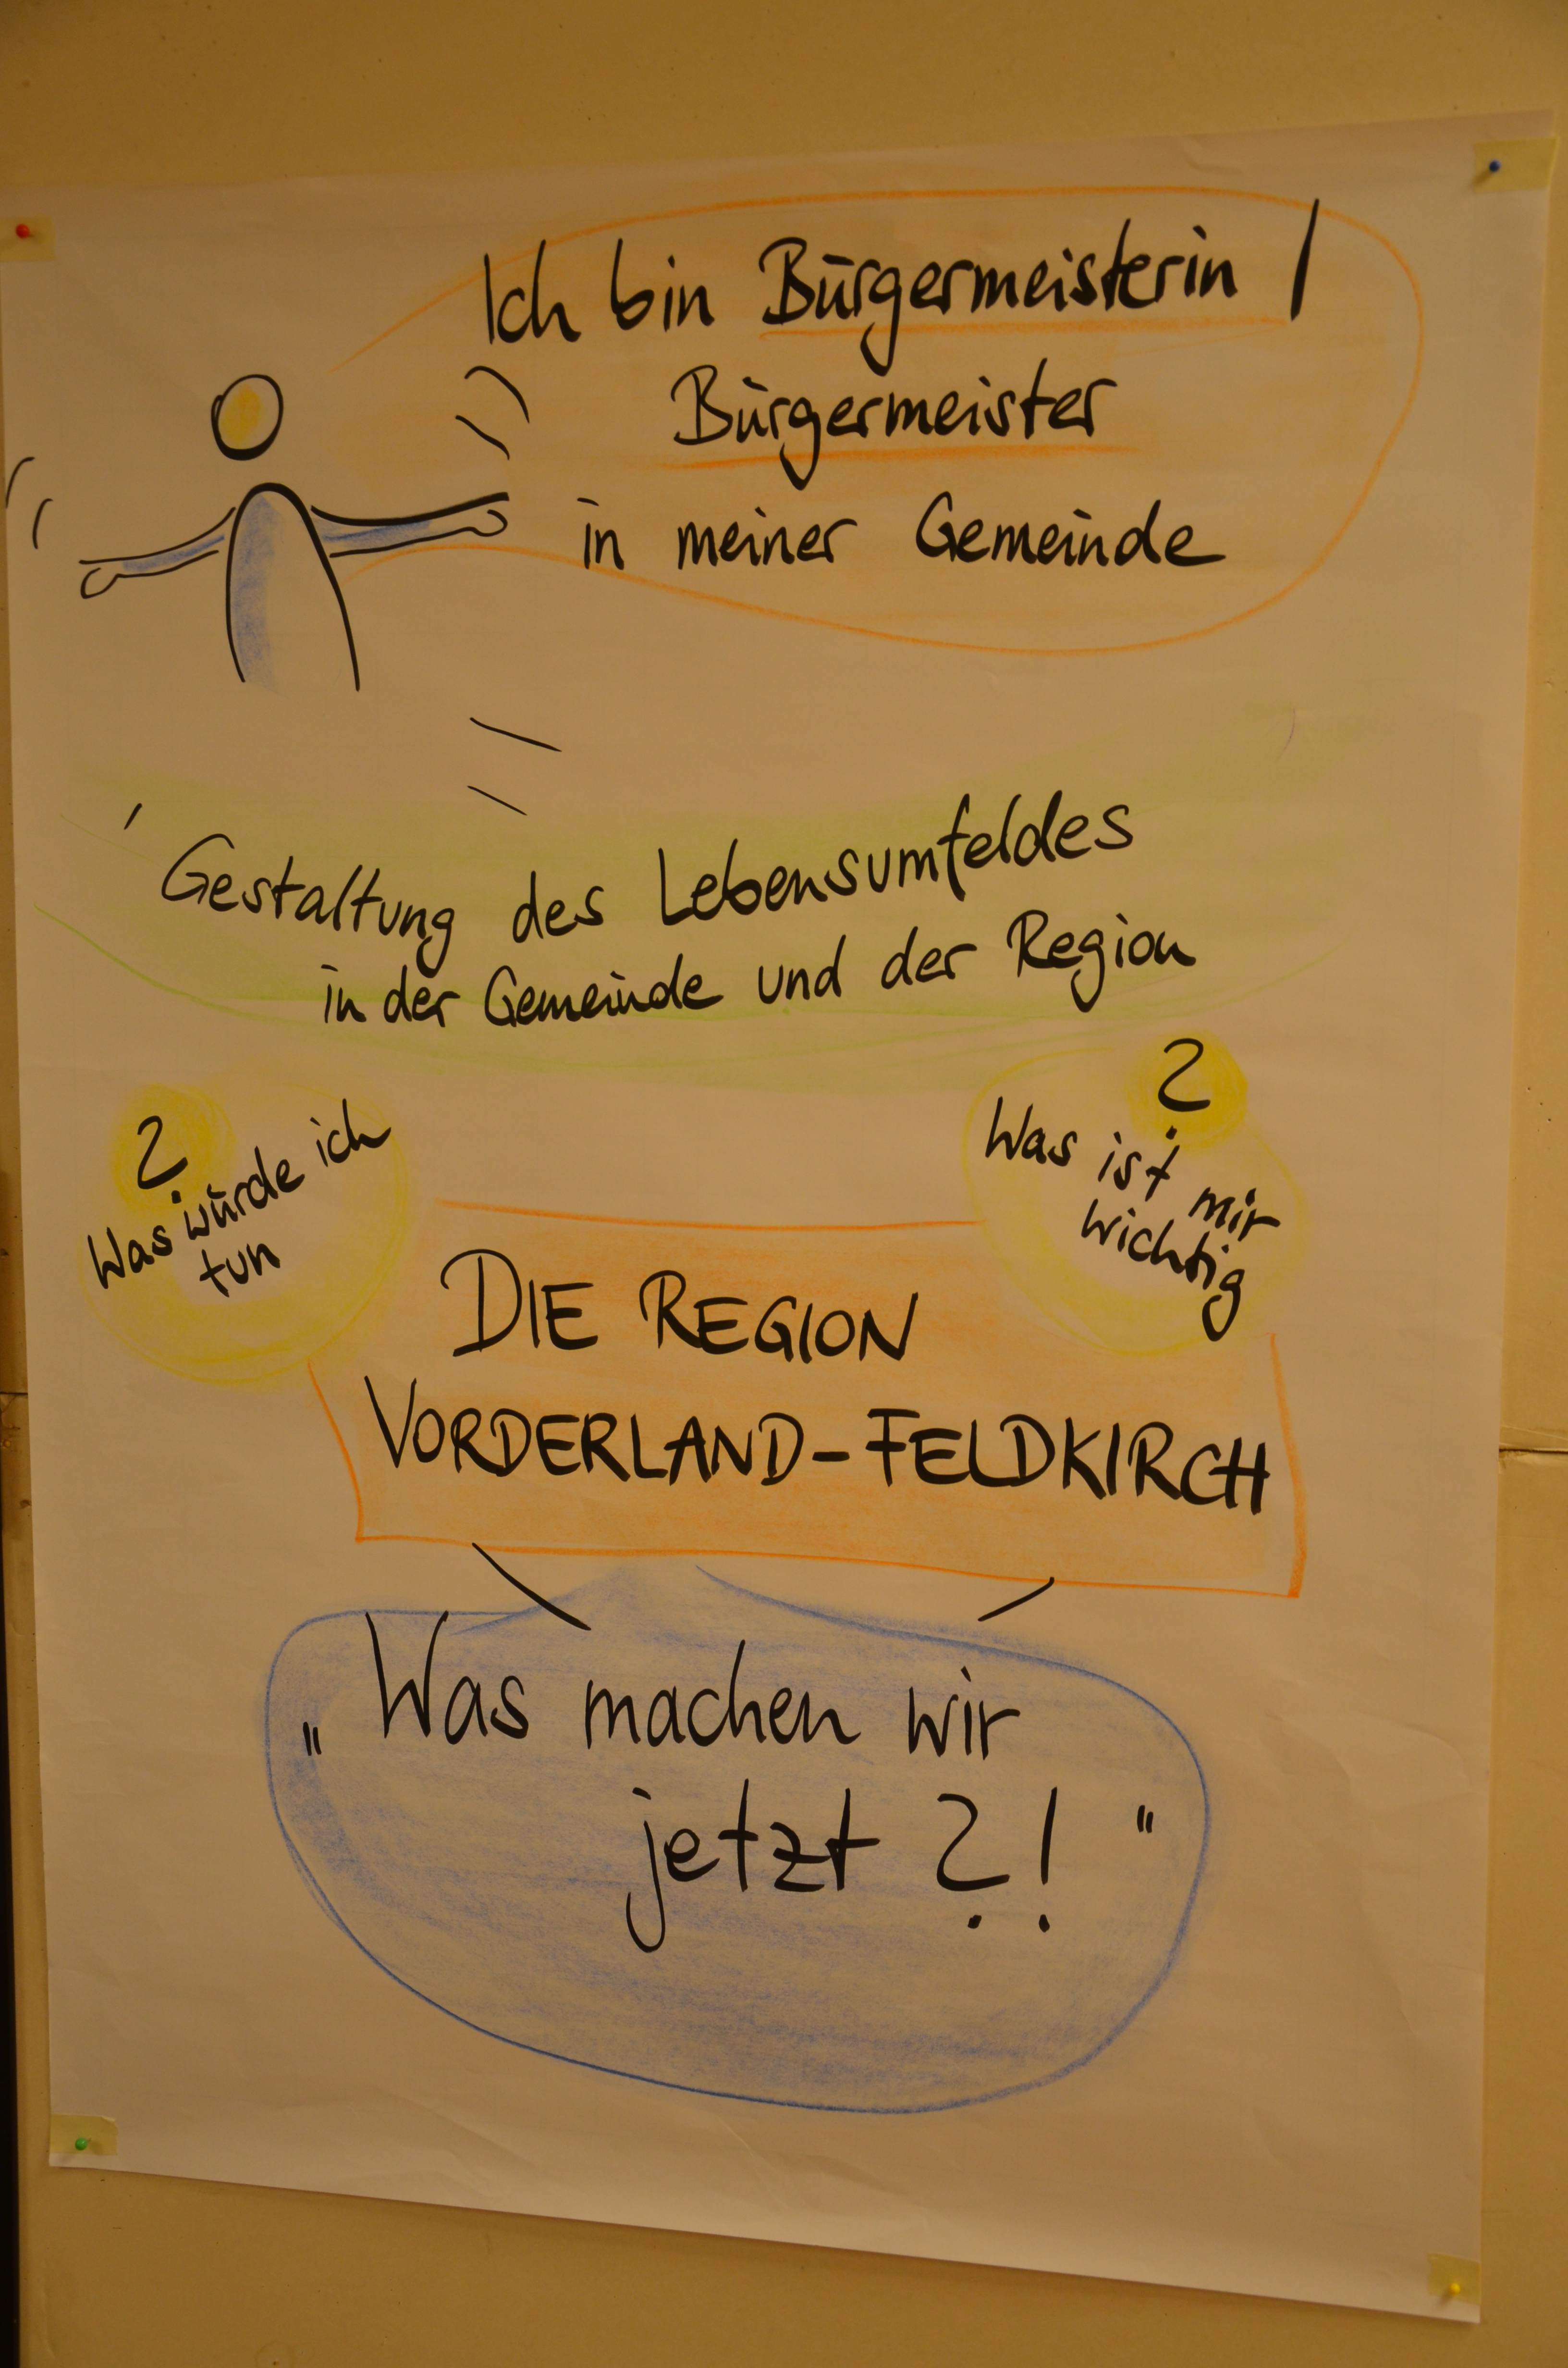 Ich bin Bürgermeisterin /
Bürgermeister
in meiner Gemeinde
Gestaltung des Lebensumfeldes
in der Gemeinde und der Region
?
Was würde ich
tun
?
Was ist mir
wichtig
DIE REGION
VORDERLAND-FELDKIRCH
„Was machen wir
jetzt ?! "